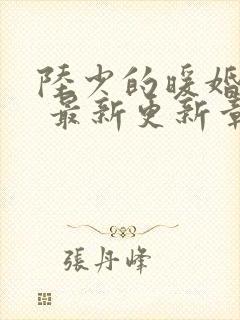 陸少的暖婚
最新更新章
張丹峰